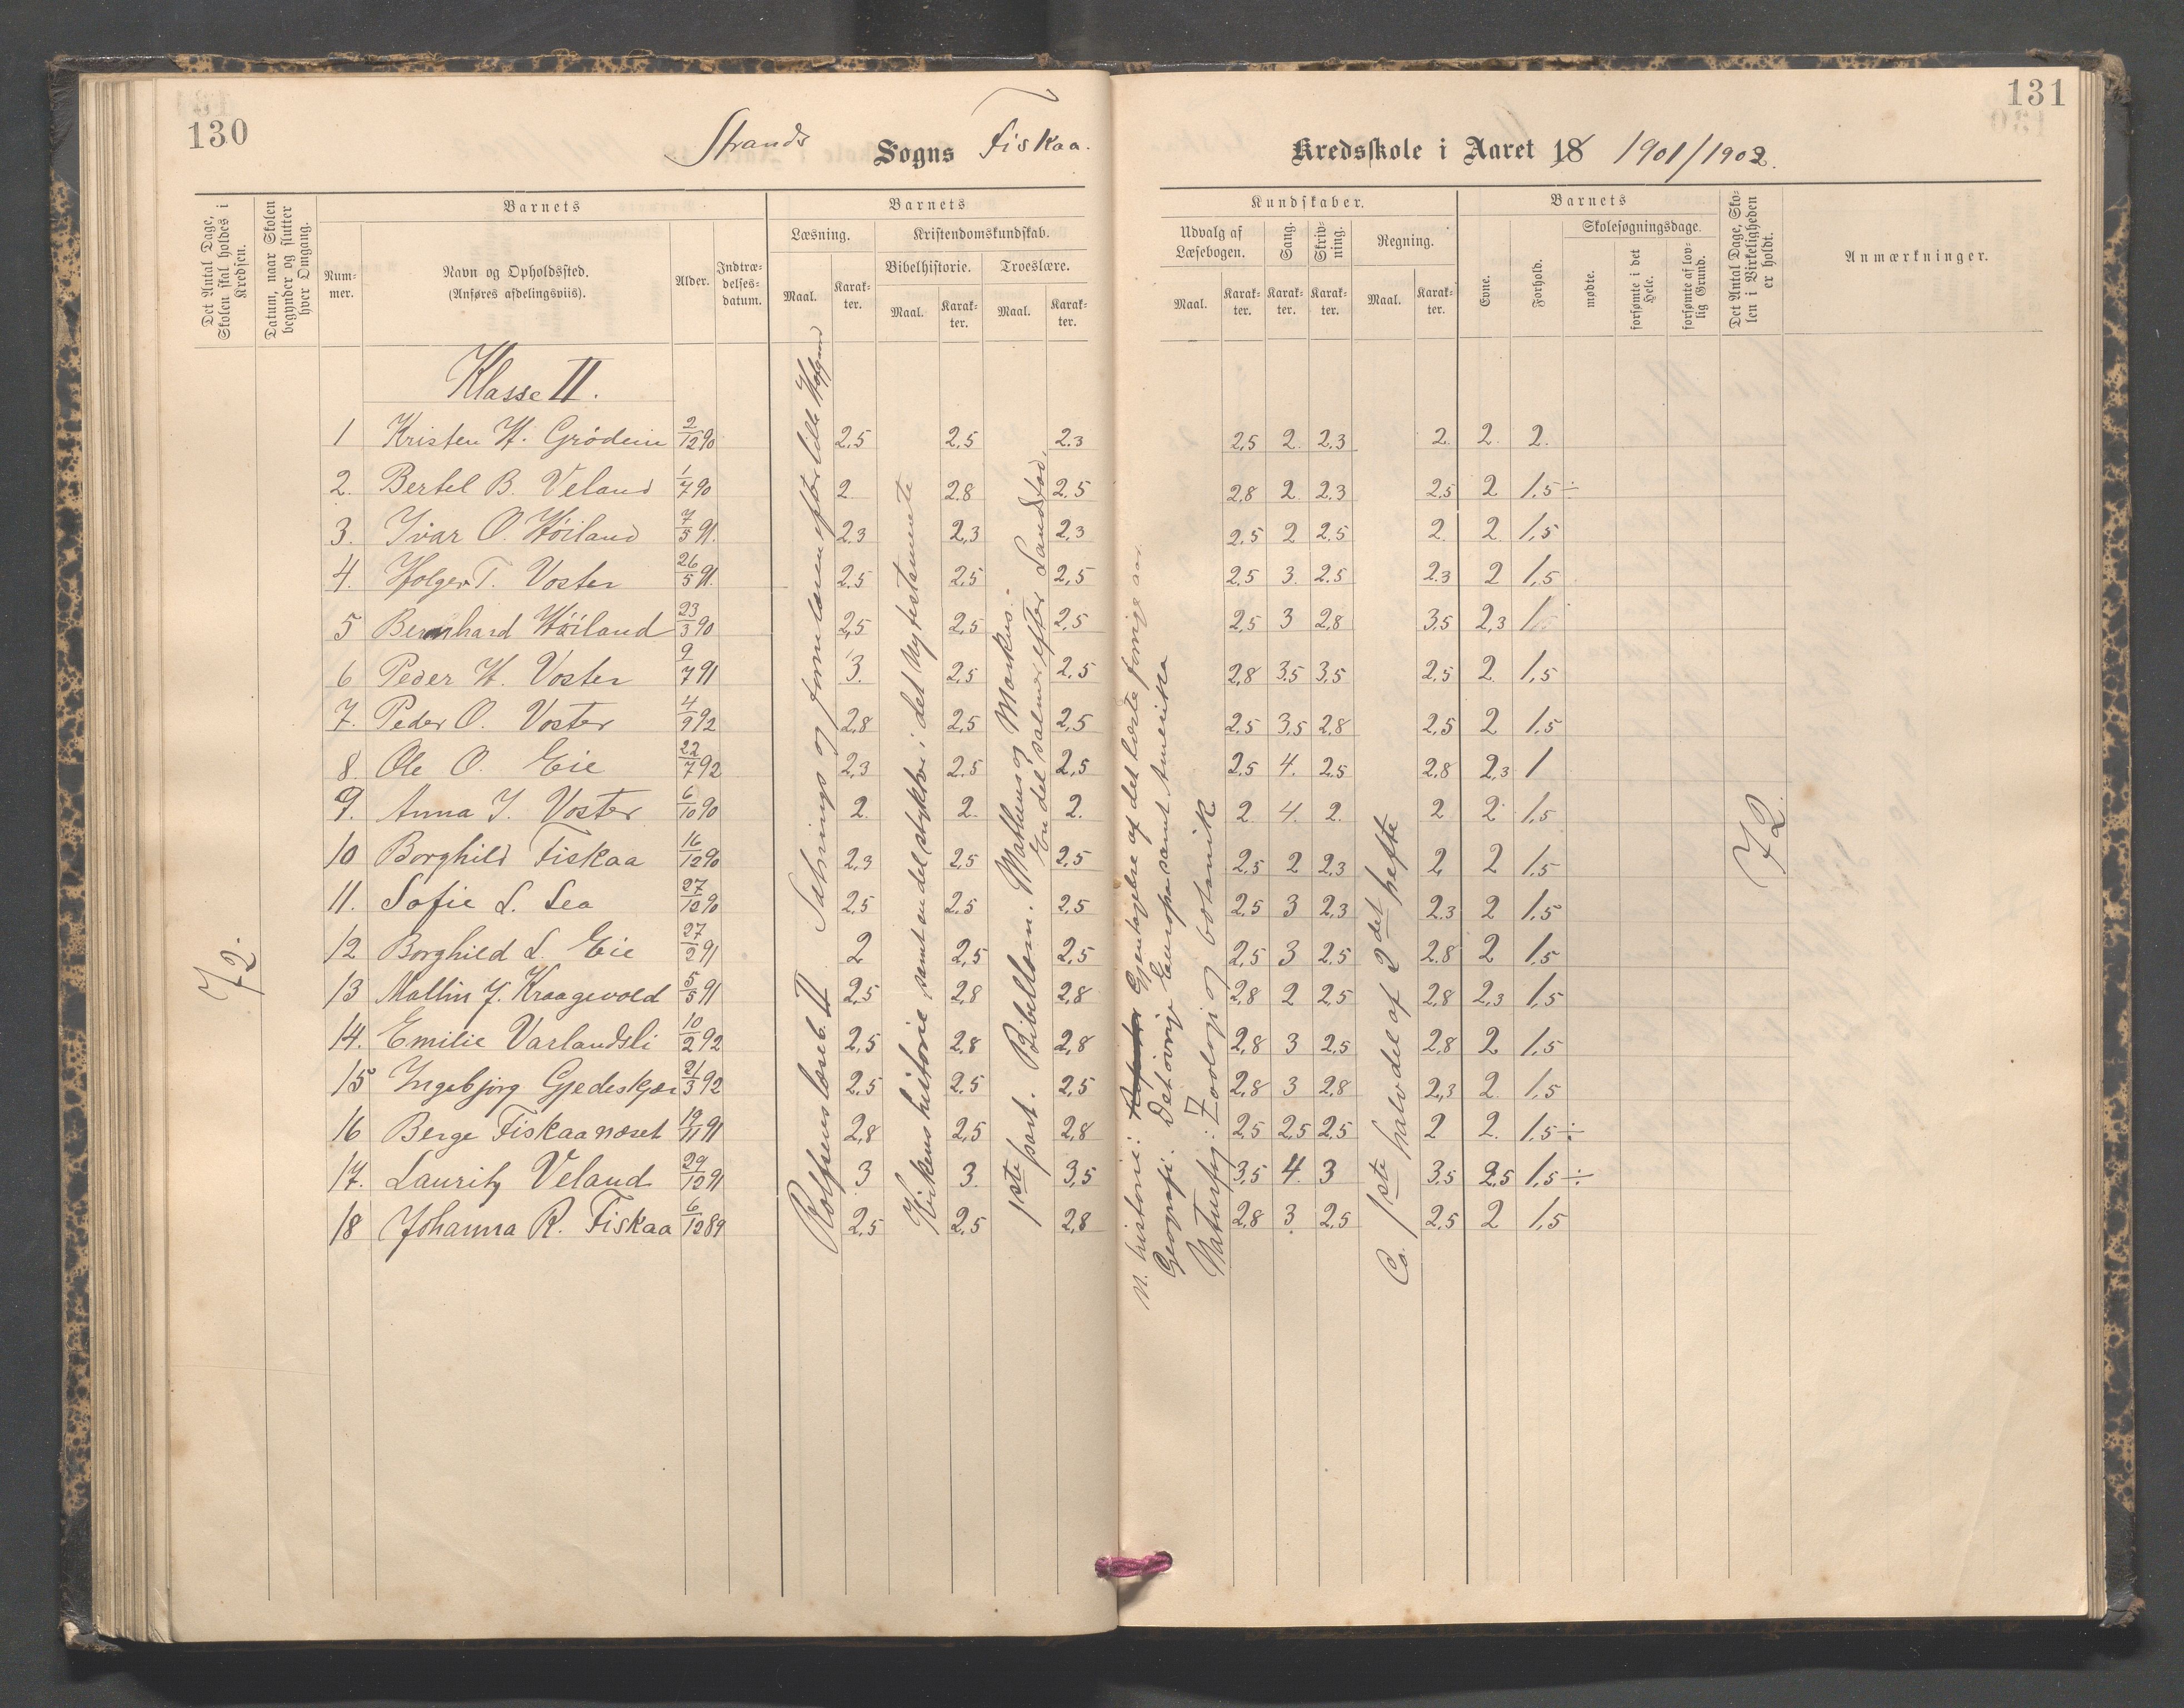 130
131
Strands Sogns Fiskaa. Kredsskole i Aaret 18 1901/1902.
Det Antal Dage, Skolen skal holdes i Kredsen.
Datum, naar Skolen begynder og slutter hver Omgang.
Barnets
Barnets
Kundskaber.
Barnets
Det Antal Dage, Skolen i Virkeligheden er holdt.
Anmærkninger.
Nummer.
Navn og Opholdssted. (Anføres afdelingsviis).
Alder.
Indtrædelsesdatum.
Læsning.
Kristendomskundskab.
Bibelhistorie.
Troeslære.
Udvalg af Læsebogen.
Sang.
Skrivning.
Regning.
Evne.
Forhold.
Skolesøgningsdage.
mødte.
forsømte i det Hele.
forsømte af lovlig Grund.
Maal. Karakter. Maal. Karakter. Maal. Karakter. Maal. Karakter. Karakter. Karakter. Maal. Karakter.
Klasse II.
1 Kristen H. Grødein 2/12 90 2,5 2,5 2,3 2,5 2. 2,3 2. 2. 2.
2. Bertel B. Veland 1/7 90 2 2,8 2,5 2,8 2. 2,3 2,5 2 1,5 ÷
3. Ivar O. Høiland 7/5 91. 2,3 2,3 2,3 2,5 2 2,5 2. 2. 1,5
4. Holger T. Voster 26/5 91. 2,5 2,5 2,5 2,5 3. 2,5 2,3 2 1,5
5 Bernhard Høiland 23/3 90 2,5 2,5 2,5 2,5 3 2,8 3,5 2,3 1
6 Peder H. Voster 9/7 91 3. 2,5 2,5 2,8 3,5 3,5 2,5 2. 1,5
7. Peder O. Voster 4/9 92 2,8 2,5 2,5 2,5 3,5 2,8 2,5 2 1,5
8. Ole O. Eie 22/7 92 2,3 2,5 2,5 2,5 4. 2,5 2,8 2,3 1
9. Anna I. Voster 6/10 90 2. 2. 2. 2. 4. 2. 2 2 1,5
10 Borghild Fiskaa 16/12 90 2,3 2,5 2,5 2,5 2 2,3 2 2 1,5
11. Sofie L. Lea 27/12 90 2,5 2,5 2,5 2,5 3 2,3 2,3 2 1,5
12 Borghild L. Eie 27/2 91 2 2,5 2,5 2,5 3 2,5 2,8 2 1,5
13 Mallin J. Kraagevold 5/5 91 2,5 2,8 2,8 2,8 2 2,5 2,8 2,3 1,5
14. Emilie Varlandsli 10/2 92 2,5 2,8 2,8 2,8 3 2,5 2,8 2 1,5
15 Ingebjørg Gjedeskjær 21/3 92 2,5 2,5 2,5 2,8 3 2,8 2,3 2. 1,5
16 Berge Fiskaanæset 19/11 91 2,8 2,5 2,8 2,5 2,5 2,5 2 2. 1,5 ÷
17. Lauritz Veland 29/12 91 3 3. 3,5 3,5 4. 3 3,5 2,5 1,5 ÷
18 Johanna R. Fiskaa 6/12 89 2,5 2,5 2,8 2,8 3. 2,5 2,5 2 1,5
72.
Rolfsens læseb. II Sætnings og formlæren efter lille Hofgaard
Kirkens historie samt en del stykker i det Ny testamente
1ste part. Bibellæsn. Mathæus og Markus.
En del salmer efter Landstad.
N. historie: Gjentagelse af det læste forrige aar.
Geografi. Det øvrige Europa samt Amerika
Naturfag: Zoologi og botanik
Ca. 1ste halvdel af 2det hefte
72.